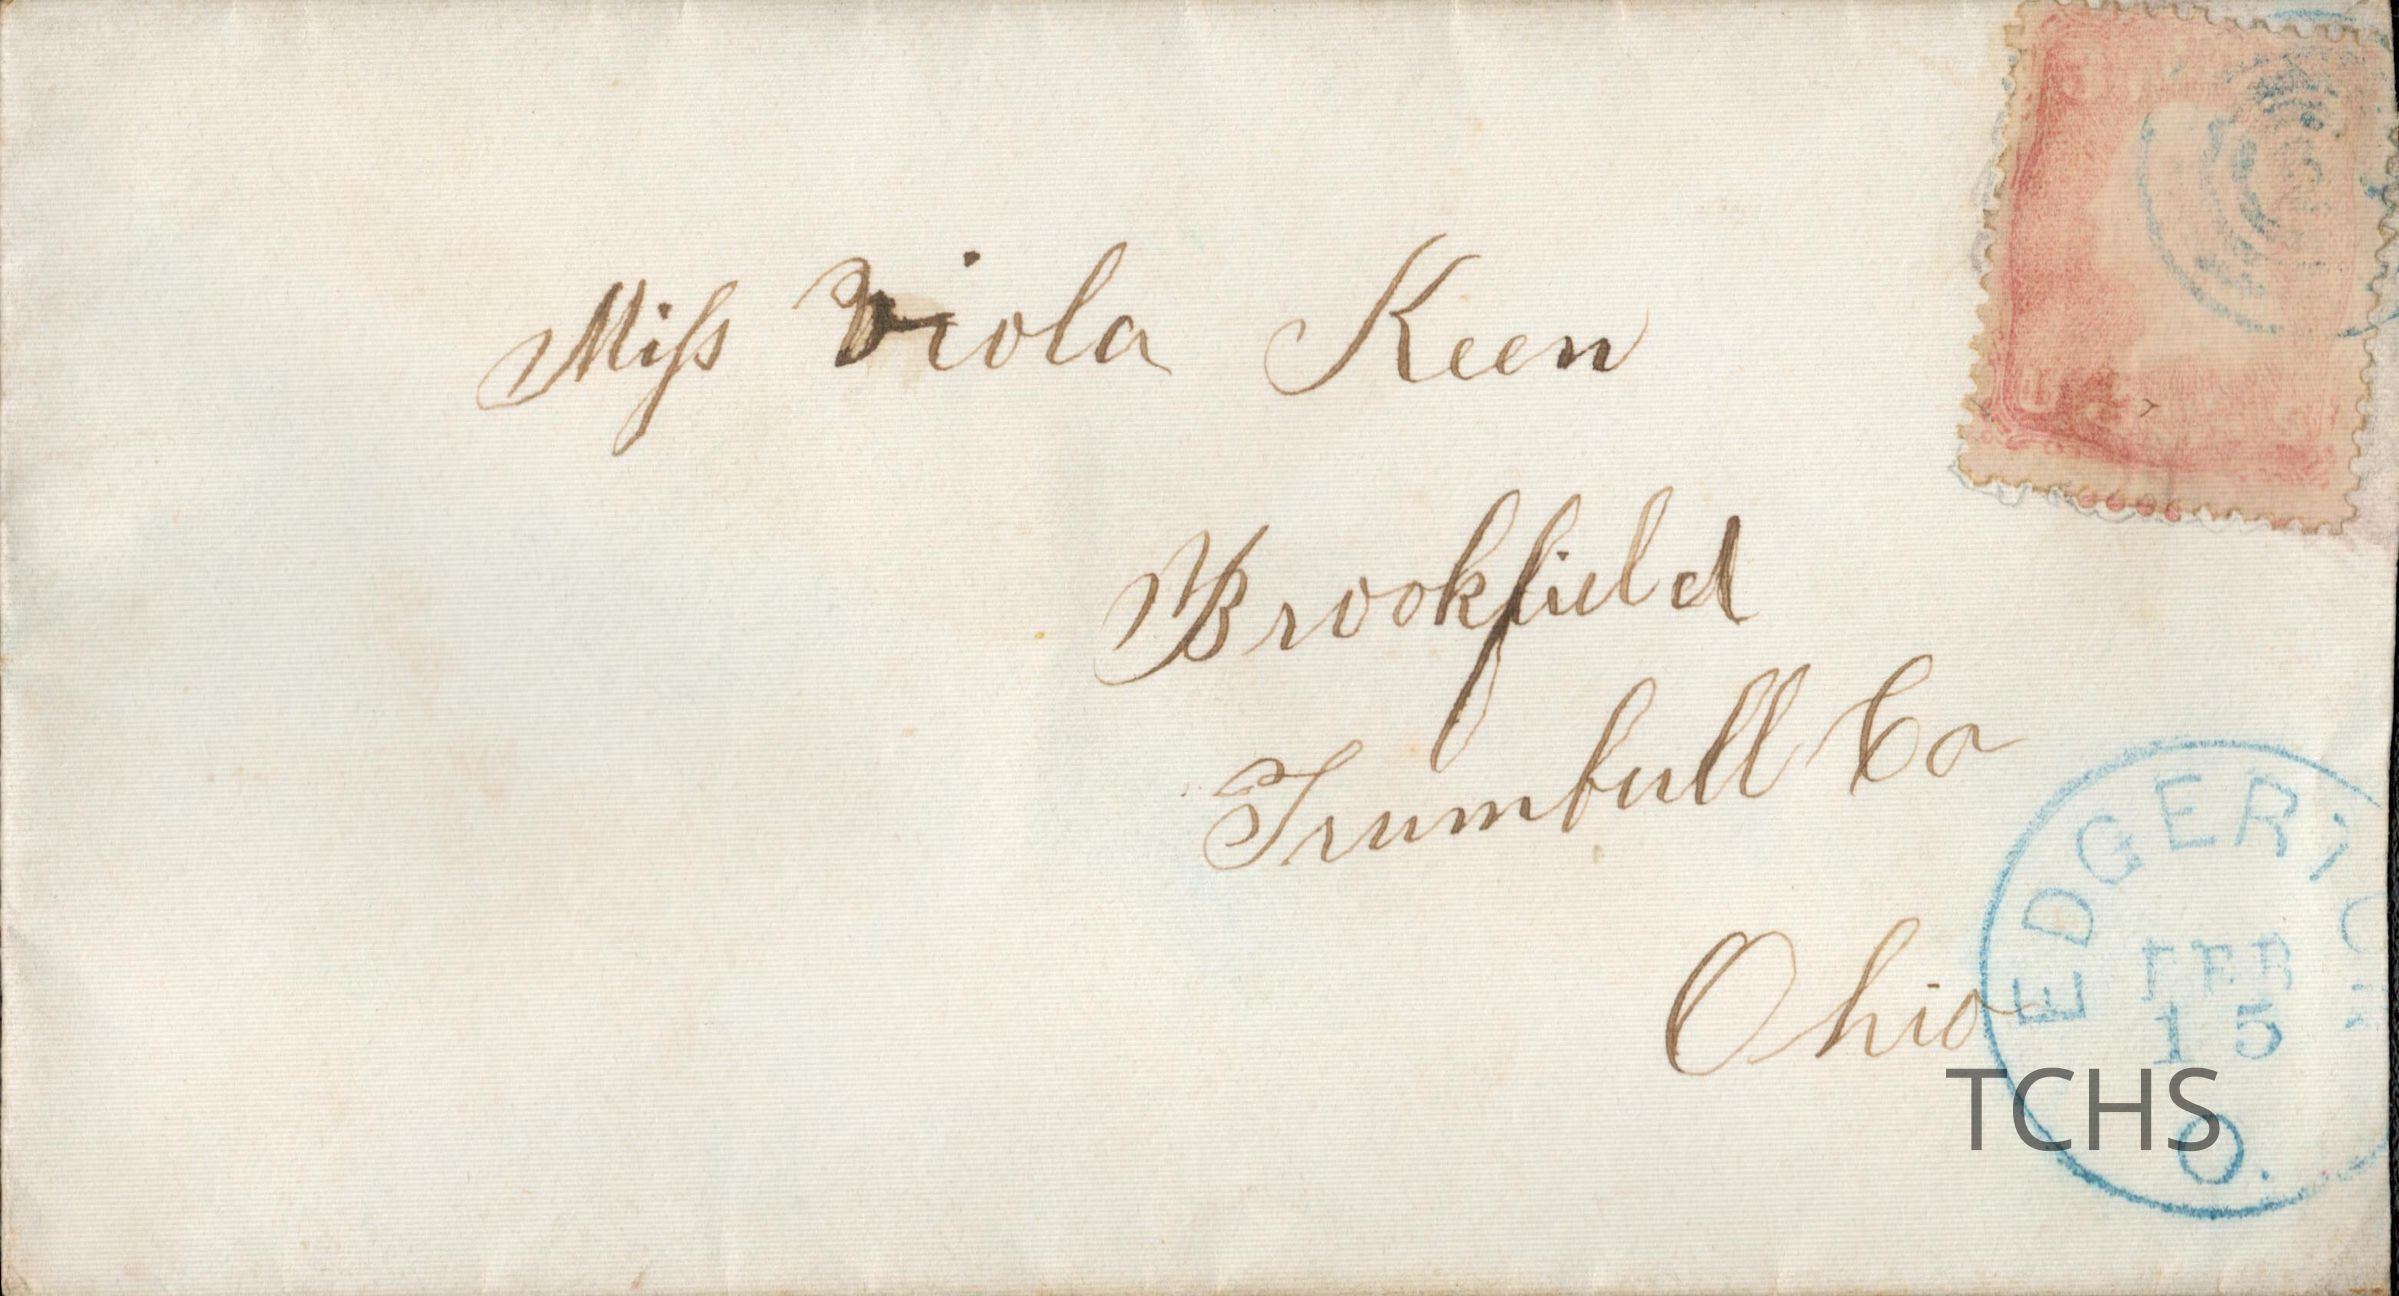 Miss Viola Keen
Brookfield
Trumbull Co
Ohio
EDGERTON
FEB
15
O.
TCHS